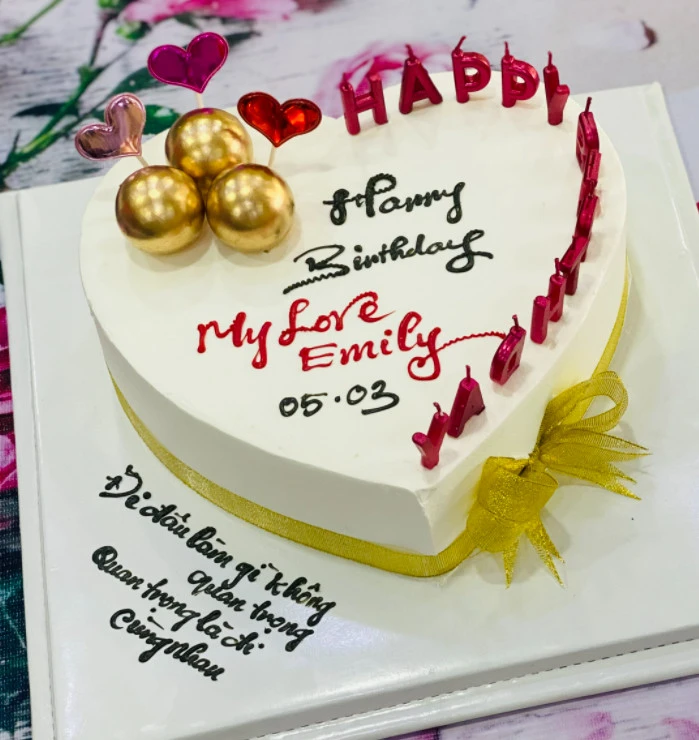 HAPPY BIRTHDAY
Happy
Birthday
My Love
Emily
05.03
Đi đâu làm gì không
quan trọng
Quan trọng là đi
cùng nhau